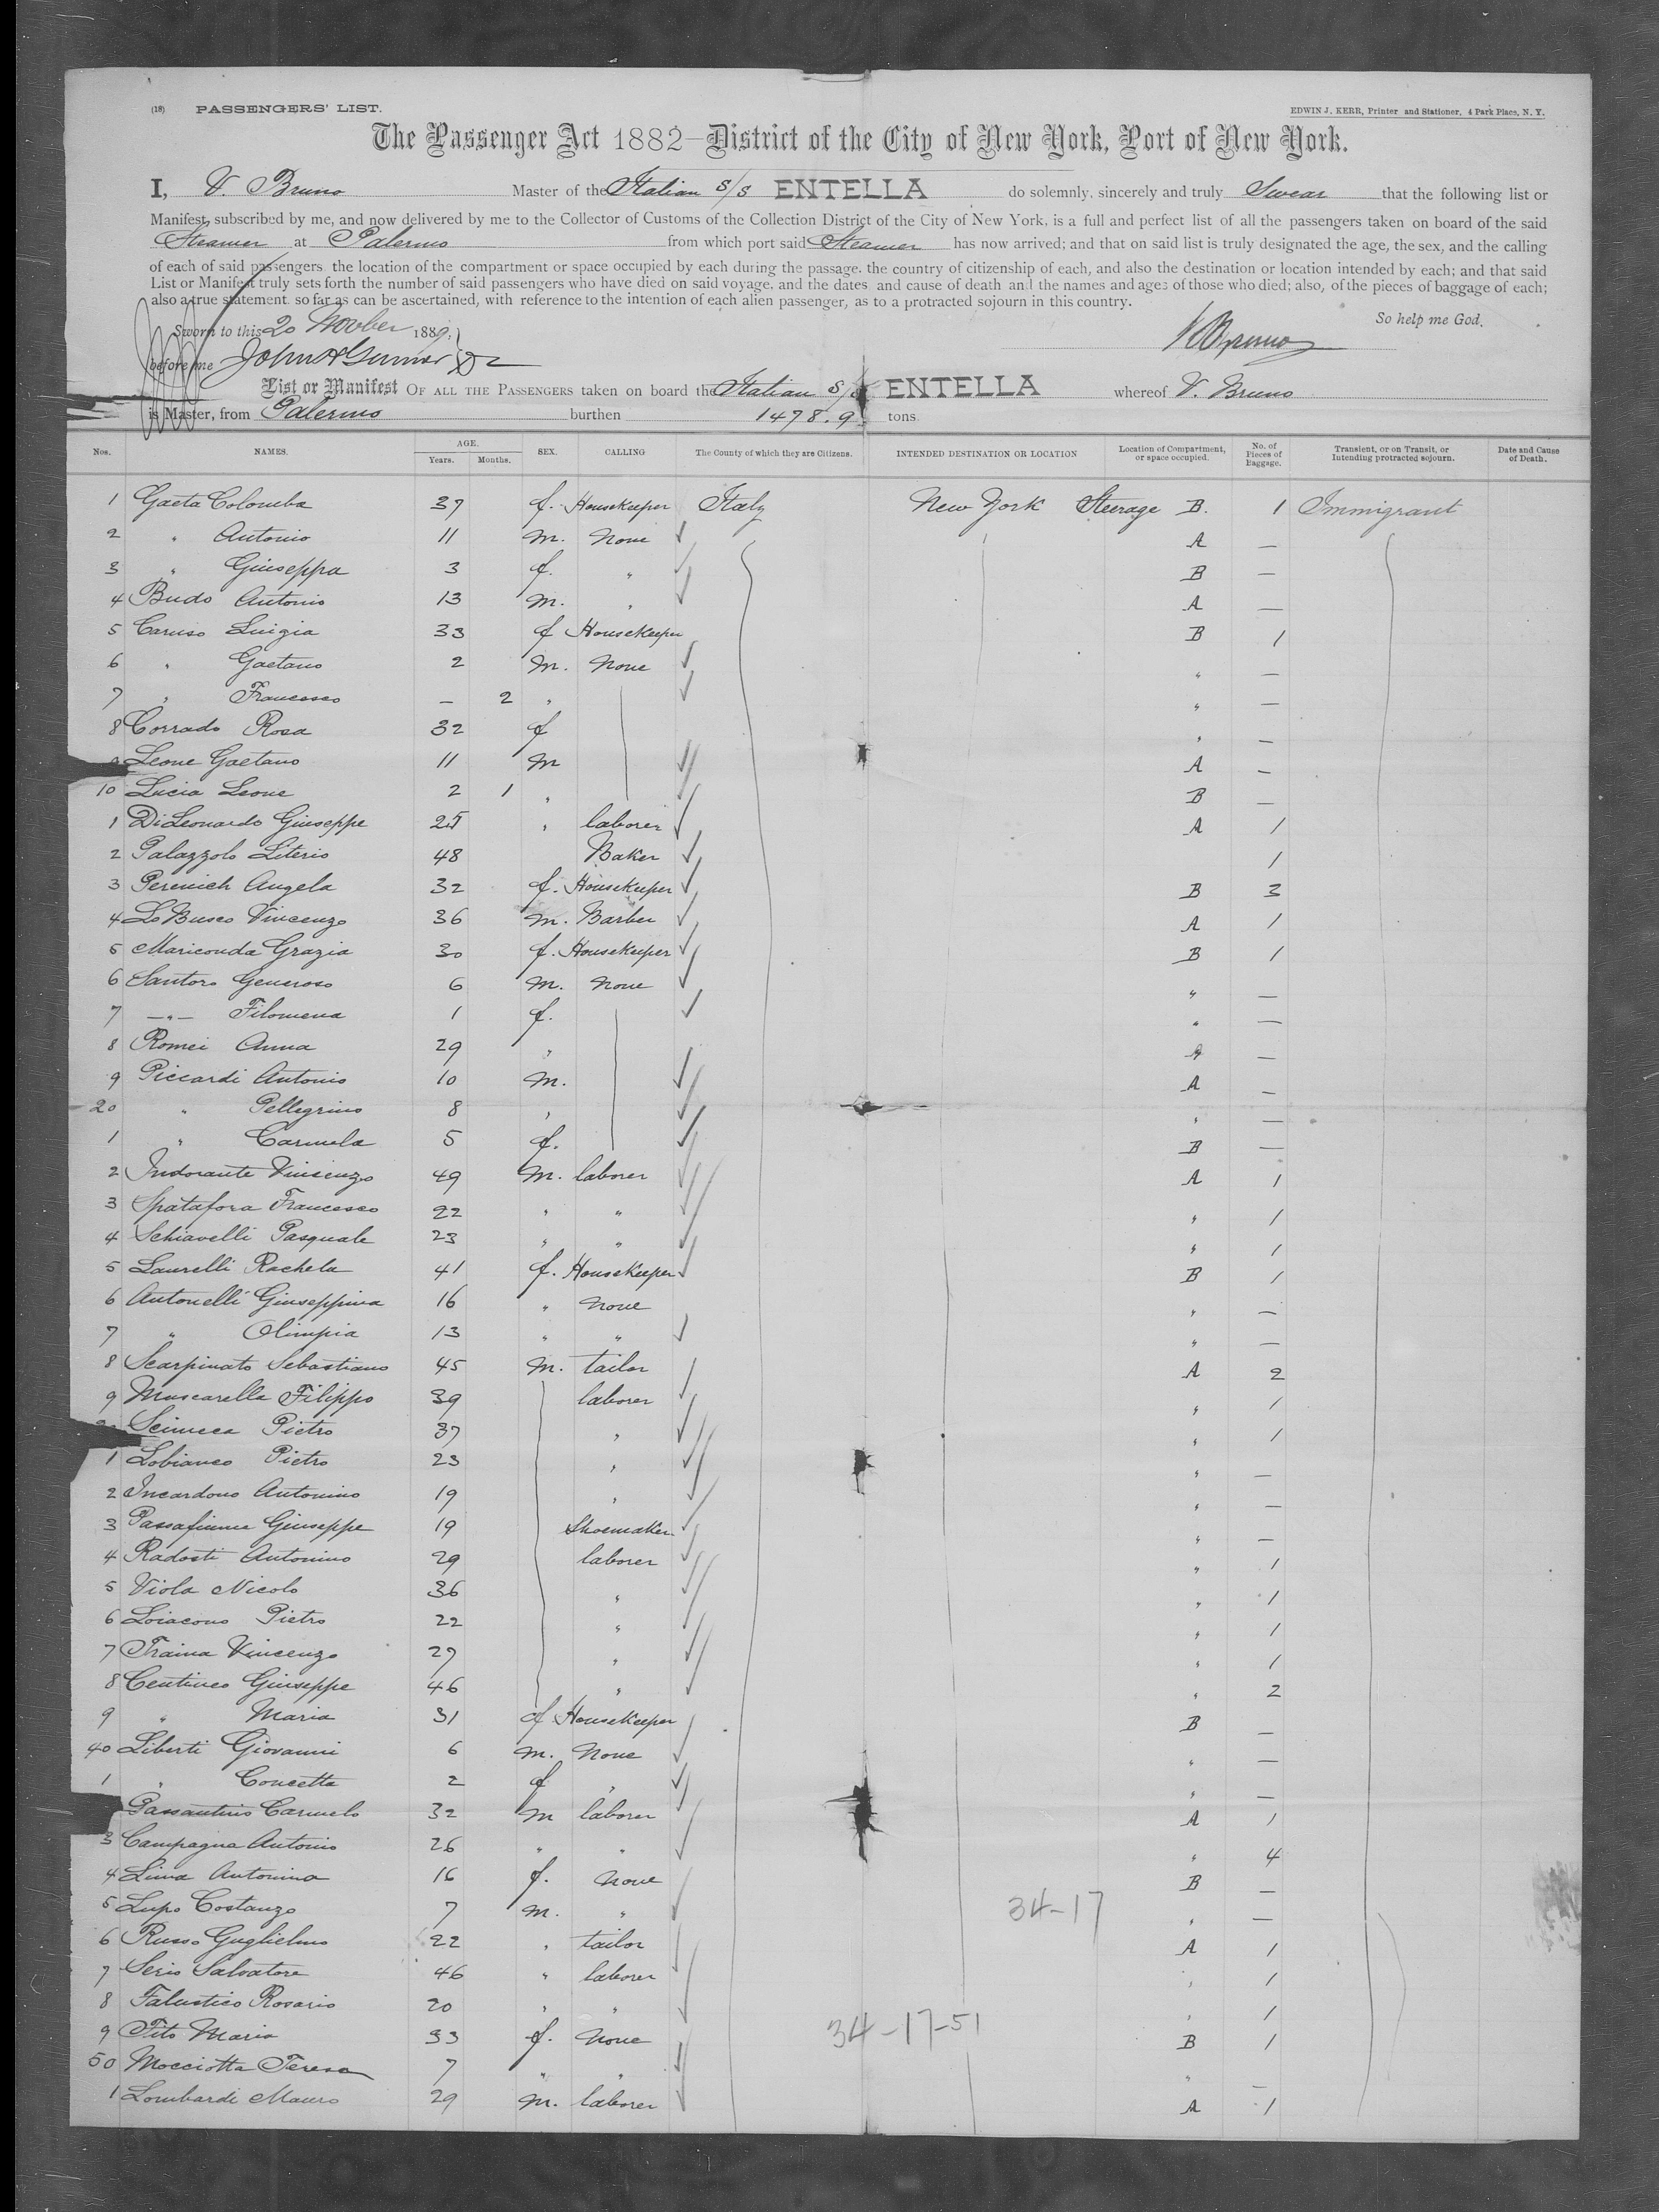 (18) PASSENGERS' LIST. EDWIN J. KERR, Printer and Stationer, 4 Park Place, N. Y.
The Passenger Act 1882—District of the City of New York, Port of New York.
I, V. Bruno Master of the Italian S/S ENTELLA do solemnly, sincerely and truly Swear that the following list or
Manifest, subscribed by me, and now delivered by me to the Collector of Customs of the Collection District of the City of New York, is a full and perfect list of all the passengers taken on board of the said
Steamer at Palermo from which port said Steamer has now arrived; and that on said list is truly designated the age, the sex, and the calling
of each of said passengers, the location of the compartment or space occupied by each during the passage, the country of citizenship of each, and also the destination or location intended by each; and that said
List or Manifest truly sets forth the number of said passengers who have died on said voyage, and the dates and cause of death and the names and ages of those who died; also, of the pieces of baggage of each;
also a true statement, so far as can be ascertained, with reference to the intention of each alien passenger, as to a protracted sojourn in this country.
So help me God.
Sworn to this 20 Novber 1889,
before me
List or Manifest OF ALL THE PASSENGERS taken on board the Italian S/S ENTELLA whereof V. Bruno
is Master, from Palermo burthen 1478.9 tons.
Nos. NAMES. AGE. Years. Months. SEX. CALLING The County of which they are Citizens. INTENDED DESTINATION OR LOCATION Location of Compartment, or space occupied. No. of Pieces of Baggage. Transient, or on Transit, or Intending protracted sojourn. Date and Cause of Death.
1 Gaeta Colomba 37 f. Housekeeper Italy New York Steerage B. 1 Immigrant
2 " Antonio 11 m. None A —
3 " Giuseppa 3 f. " B —
4 Budo Antonio 13 m. " A —
5 Caruso Luigia 33 f Housekeeper B 1
6 " Gaetano 2 m. None " —
7 " Francesco — 2 " " —
8 Corrado Rosa 32 f " —
Leone Gaetano 11 m A —
10 Lucia Leone 2 1 " B —
1 DiLeonardo Giuseppe 25 " laborer A 1
2 Palazzolo Literio 48 Baker 1
3 Perenich Angela 32 f. Housekeeper B 3
4 Lo Busco Vincenzo 36 m. Barber A 1
5 Mariconda Grazia 30 f. Housekeeper B 1
6 Santoro Generoso 6 m. None " —
7 —"— Filomena 1 f. " —
8 Romei Anna 29 " " —
9 Piccardi Antonio 10 m. A —
20 " Pellegrino 8 " " —
1 " Carmela 5 f. B —
2 Indorante Vincenzo 49 m. laborer A 1
3 Spatafora Francesco 22 " " " 1
4 Schiavelli Pasquale 23 " " " 1
5 Laurelli Rachela 41 f. Housekeeper B 1
6 Antonelli Giuseppina 16 " None " —
7 " Olimpia 13 " " " —
8 Scarpinato Sebastiano 45 m. tailor A 2
9 Muscarella Filippo 39 laborer " 1
Scimeca Pietro 37 " " 1
1 Lobianco Pietro 23 " " —
2 Incardono Antonino 19 " " —
3 Passafiume Giuseppe 19 Shoemaker " —
4 Radosti Antonino 29 laborer " 1
5 Viola Nicolo 36 " " 1
6 Loiacono Pietro 22 " " 1
7 Traina Vincenzo 27 " " 1
8 Centineo Giuseppe 46 " " 2
9 " Maria 31 f Housekeeper B —
40 Liberti Giovanni 6 m. None " —
1 " Concetta 2 f " " —
Passantino Carmelo 32 m laborer A 1
3 Campagna Antonio 26 " " " 4
4 Lima Antonina 16 f. None B —
5 Lupo Costanzo 7 m. " 34-17 " —
6 Russo Guglielmo 22 " tailor A 1
7 Serio Salvatore 46 " laborer " 1
8 Falustico Rosario 20 " " " 1
9 Tito Maria 33 f. None 34-17-51 B 1
50 Mocciotta Teresa 7 " " " —
1 Lombardi Mauro 29 m. laborer A 1